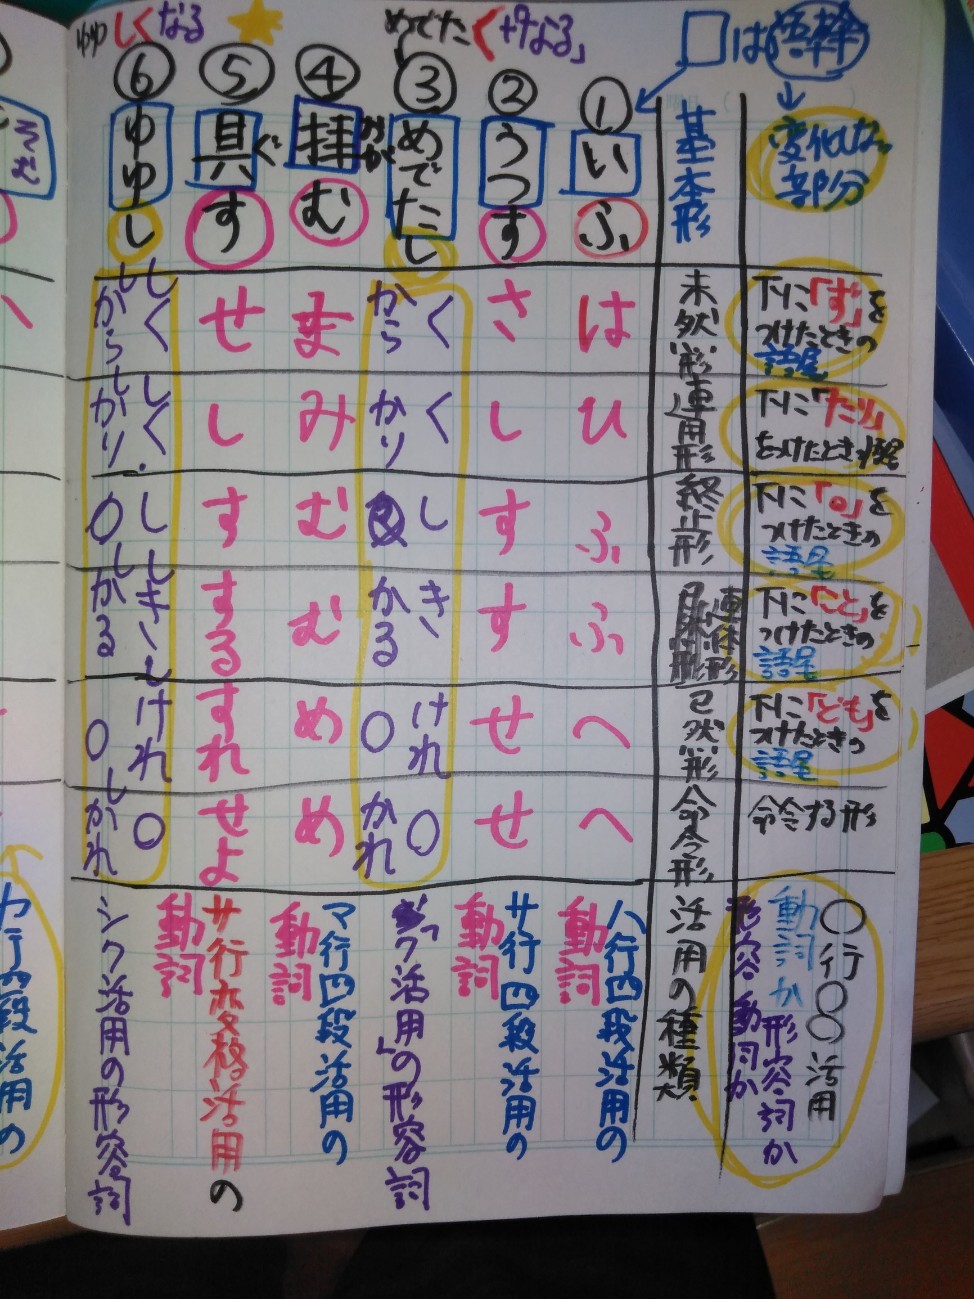 □は語幹
変化しない部分
下に「ず」をつけたときの語尾
下に「たり」をつけたときの語尾
下に「。」をつけたときの語尾
下に「こと」をつけたときの語尾
下に「ども」をつけたときの語尾
命令する形
〇行〇〇活用
動詞か形容詞か
形容動詞か
基本形
未然形
連用形
終止形
連体形
已然形
命令形
活用の種類
①
いふ
は
ひ
ふ
ふ
へ
へ
ハ行四段活用の
動詞
②
うつす
さ
し
す
す
せ
せ
サ行四段活用の
動詞
めでたく+「なる」
③
めでたし
く
から
く
かり
し
き
かる
けれ
〇
〇
かれ
ク活用」の形容詞
④
拝む
おが
ま
み
む
む
め
め
マ行四段活用の
動詞
⑤
具す
ぐ
せ
し
す
する
すれ
せよ
サ行変格活用の
動詞
ゆゆしくなる
⑥
ゆゆし
しく
しから
しく
しかり
し
〇
しき
しかる
しけれ
〇
〇
しかれ
シク活用の形容詞
カ行四段活用の